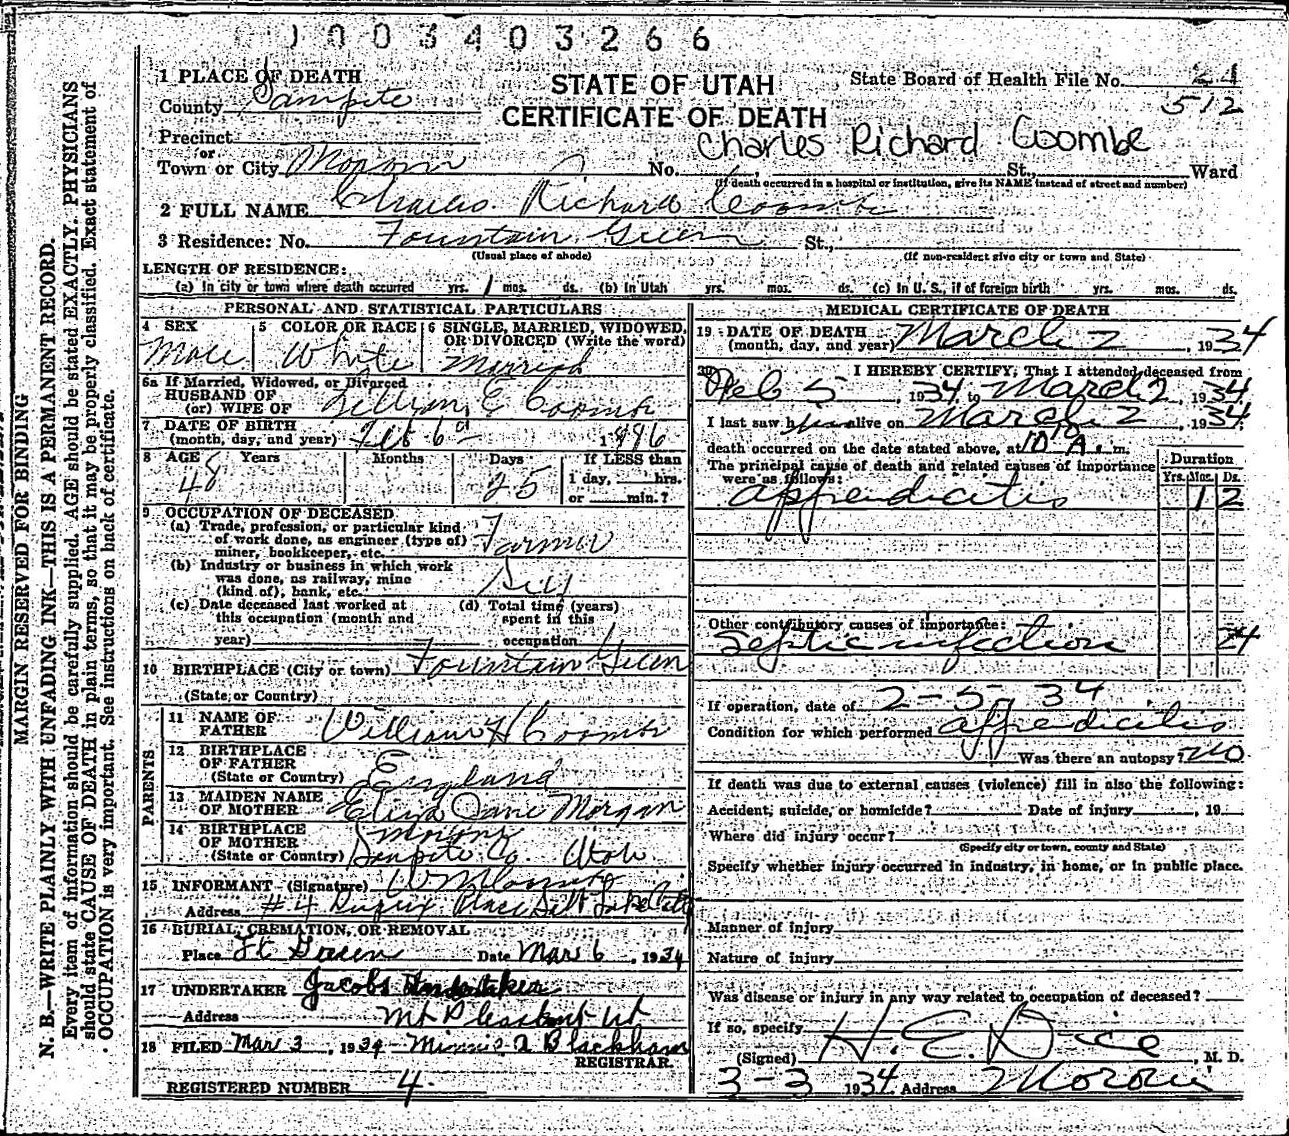 1003403266
1 PLACE OF DEATH
STATE OF UTAH
State Board of Health File No. 21
County Sanpete
CERTIFICATE OF DEATH
512
Precinct
Charles Richard Coombe
or
Town or City Moroni No. St., Ward
(If death occurred in a hospital or institution, give its NAME instead of street and number)
2 FULL NAME Charles Richard Coombs
3 Residence: No. Fountain Green St.,
(Usual place of abode) (If non-resident give city or town and State)
LENGTH OF RESIDENCE:
(a) In city or town where death occurred yrs. 1 mos. ds. (b) In Utah yrs. mos. ds. (c) In U. S., if of foreign birth yrs. mos. ds.
PERSONAL AND STATISTICAL PARTICULARS
4 SEX Male
5 COLOR OR RACE White
6 SINGLE, MARRIED, WIDOWED, OR DIVORCED (Write the word) Married
6a If Married, Widowed, or Divorced
HUSBAND OF
(or) WIFE OF Lillian E Coombs
7 DATE OF BIRTH
(month, day, and year) Feb 6 1886
8 AGE Years 48 Months Days 25 If LESS than
1 day, hrs.
or min.?
9 OCCUPATION OF DECEASED
(a) Trade, profession, or particular kind
of work done, as engineer (type of)
miner, bookkeeper, etc. Farmer
(b) Industry or business in which work
was done, as railway, mine
(kind of), bank, etc.
(c) Date deceased last worked at
this occupation (month and
year)
(d) Total time (years)
spent in this
occupation
10 BIRTHPLACE (City or town) Fountain Green
(State or Country)
PARENTS
11 NAME OF
FATHER William H Coombs
12 BIRTHPLACE
OF FATHER
(State or Country) England
13 MAIDEN NAME
OF MOTHER Eliza Jane Morgan
14 BIRTHPLACE
OF MOTHER
(State or Country) Moroni
Sanpete Co. Utah
15 INFORMANT (Signature) Wm Coombs
Address #4 Place Salt Lake City
16 BURIAL, CREMATION, OR REMOVAL
Place Ft. Green Date Mar 6, 1934
17 UNDERTAKER Jacobs Undertaker
Address Mt Pleasant Ut
18 FILED Mar 3, 1934 Minnie A Blackham
REGISTRAR.
REGISTERED NUMBER 4.
MEDICAL CERTIFICATE OF DEATH
19 DATE OF DEATH
(month, day, and year) March 2, 1934
20 I HEREBY CERTIFY, That I attended deceased from
Feb 5, 1934, to March 2, 1934
I last saw him alive on March 2, 1934;
death occurred on the date stated above, at 10 10 A. m.
The principal cause of death and related causes of importance
were as follows:
Duration
Yrs. Mos. Ds.
appendicitis 1 2
Other contributory causes of importance:
Septic infection 24
If operation, date of 2-5, 34
Condition for which performed appendicitis
Was there an autopsy? no
If death was due to external causes (violence) fill in also the following:
Accident, suicide, or homicide? Date of injury, 19
Where did injury occur?
(Specify city or town, county and State)
Specify whether injury occurred in industry, in home, or in public place.
Manner of injury
Nature of injury
Was disease or injury in any way related to occupation of deceased?
If so, specify
(Signed) H. E. Dice, M. D.
3-3 1934. Address Moroni
MARGIN RESERVED FOR BINDING
N. B.—WRITE PLAINLY WITH UNFADING INK—THIS IS A PERMANENT RECORD.
Every item of information should be carefully supplied. AGE should be stated EXACTLY. PHYSICIANS
should state CAUSE OF DEATH in plain terms, so that it may be properly classified. Exact statement of
OCCUPATION is very important. See instructions on back of certificate.